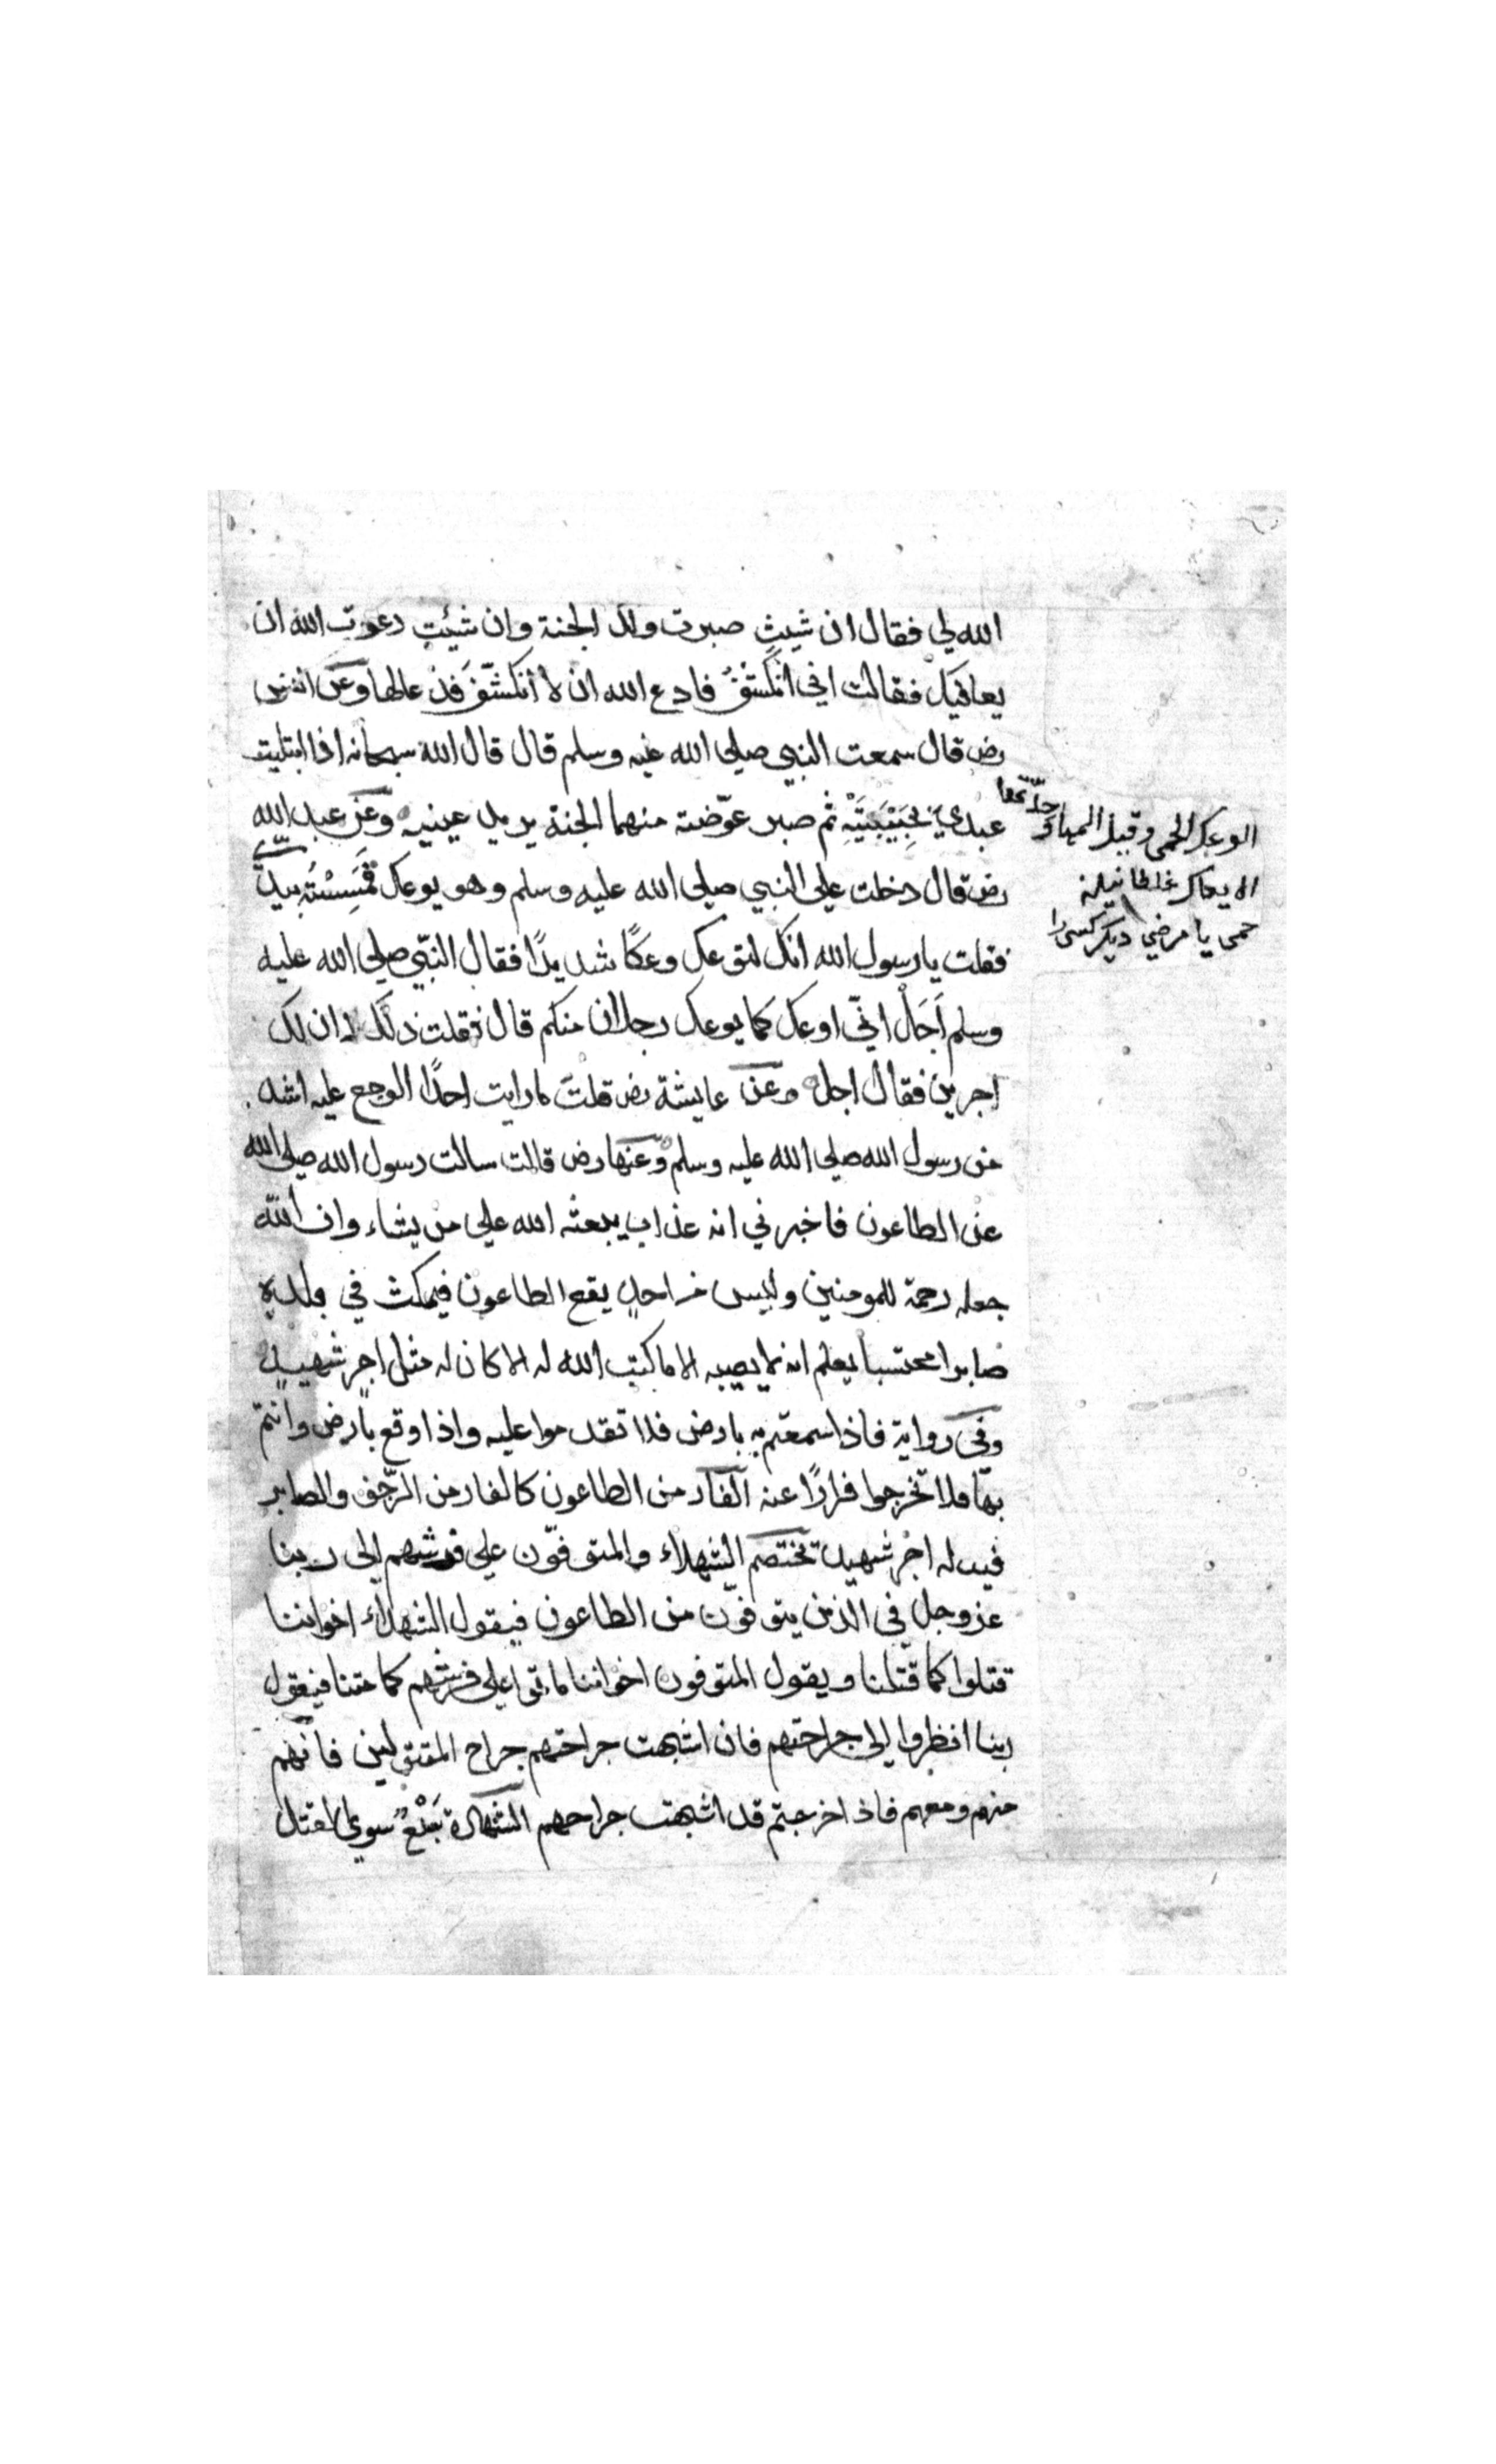 الله لي فقال ان شيتِ صبرت ولك الجنة وان شيئتِ دعوت الله ان
يعافيك فقالت اني انكشّفُ فادع الله ان لا أنكشّفَ فدعالها وعن انس
رض قال سمعت النبي صلى الله عليه وسلم قال قال الله سبحانه اذا ابتليت
عبدي بحَبِيْبَتَيْهِ ثم صبر عوّضته منهما الجنة يريد عينيه وعن عبد الله
رض قال دخلت على النبي صلى الله عليه وسلم وهو يوعك فمَسِسْتُه بيدي
فقلت يا رسول الله انك لتوعك وعكًا شديدًا فقال النّبي صلى الله عليه
وسلم اَجَلْ انّي اوعك كما يوعك رجلان منكم قال فقلت ذلك ان لك
اجرين فقال اجل وعن عايشة رض قلت ما رايت احدًا الوجع عليه اشد
من رسول الله صلى الله عليه وسلم وعنها رض قالت سالت رسول الله صلى الله
عن الطاعون فاخبرني انه عذاب يبعثه الله على من يشاء وان الله
جعله رحمة للمومنين وليس من احدٍ يقع الطاعون فيمكث في بلده
صابرا محتسبا يعلم انه لا يصيبه الا ما كتب الله له الا كان له مثل اجر شهيدٍ
وفي رواية فاذا سمعتم به بارض فلا تقدموا عليه واذا وقع بارض وانتم
بها فلا تخرجوا فرارًا عنه الفار من الطاعون كالفار من الزّحف والصابر
فيه له اجر شهيد تختصم الشهداء والمتوفّون على فرشهم الى ربنا
عز وجل في الذين يتوفّون من الطاعون فيقول الشهداء اخواننا
قتلوا كما قتلنا ويقول المتوفون اخواننا ماتوا على فرشهم كما متنا فيقول
ربنا انظروا الى جراحتهم فان اشبهت جراحتهم جراح المقتولين فانهم
منهم ومعهم فاذا خرجتم قد اشبهت جراحهم الشهادة سبع سوى القتل
الوعك الحمى وقيل المها
حمى يا مرضي ديكر كسى را